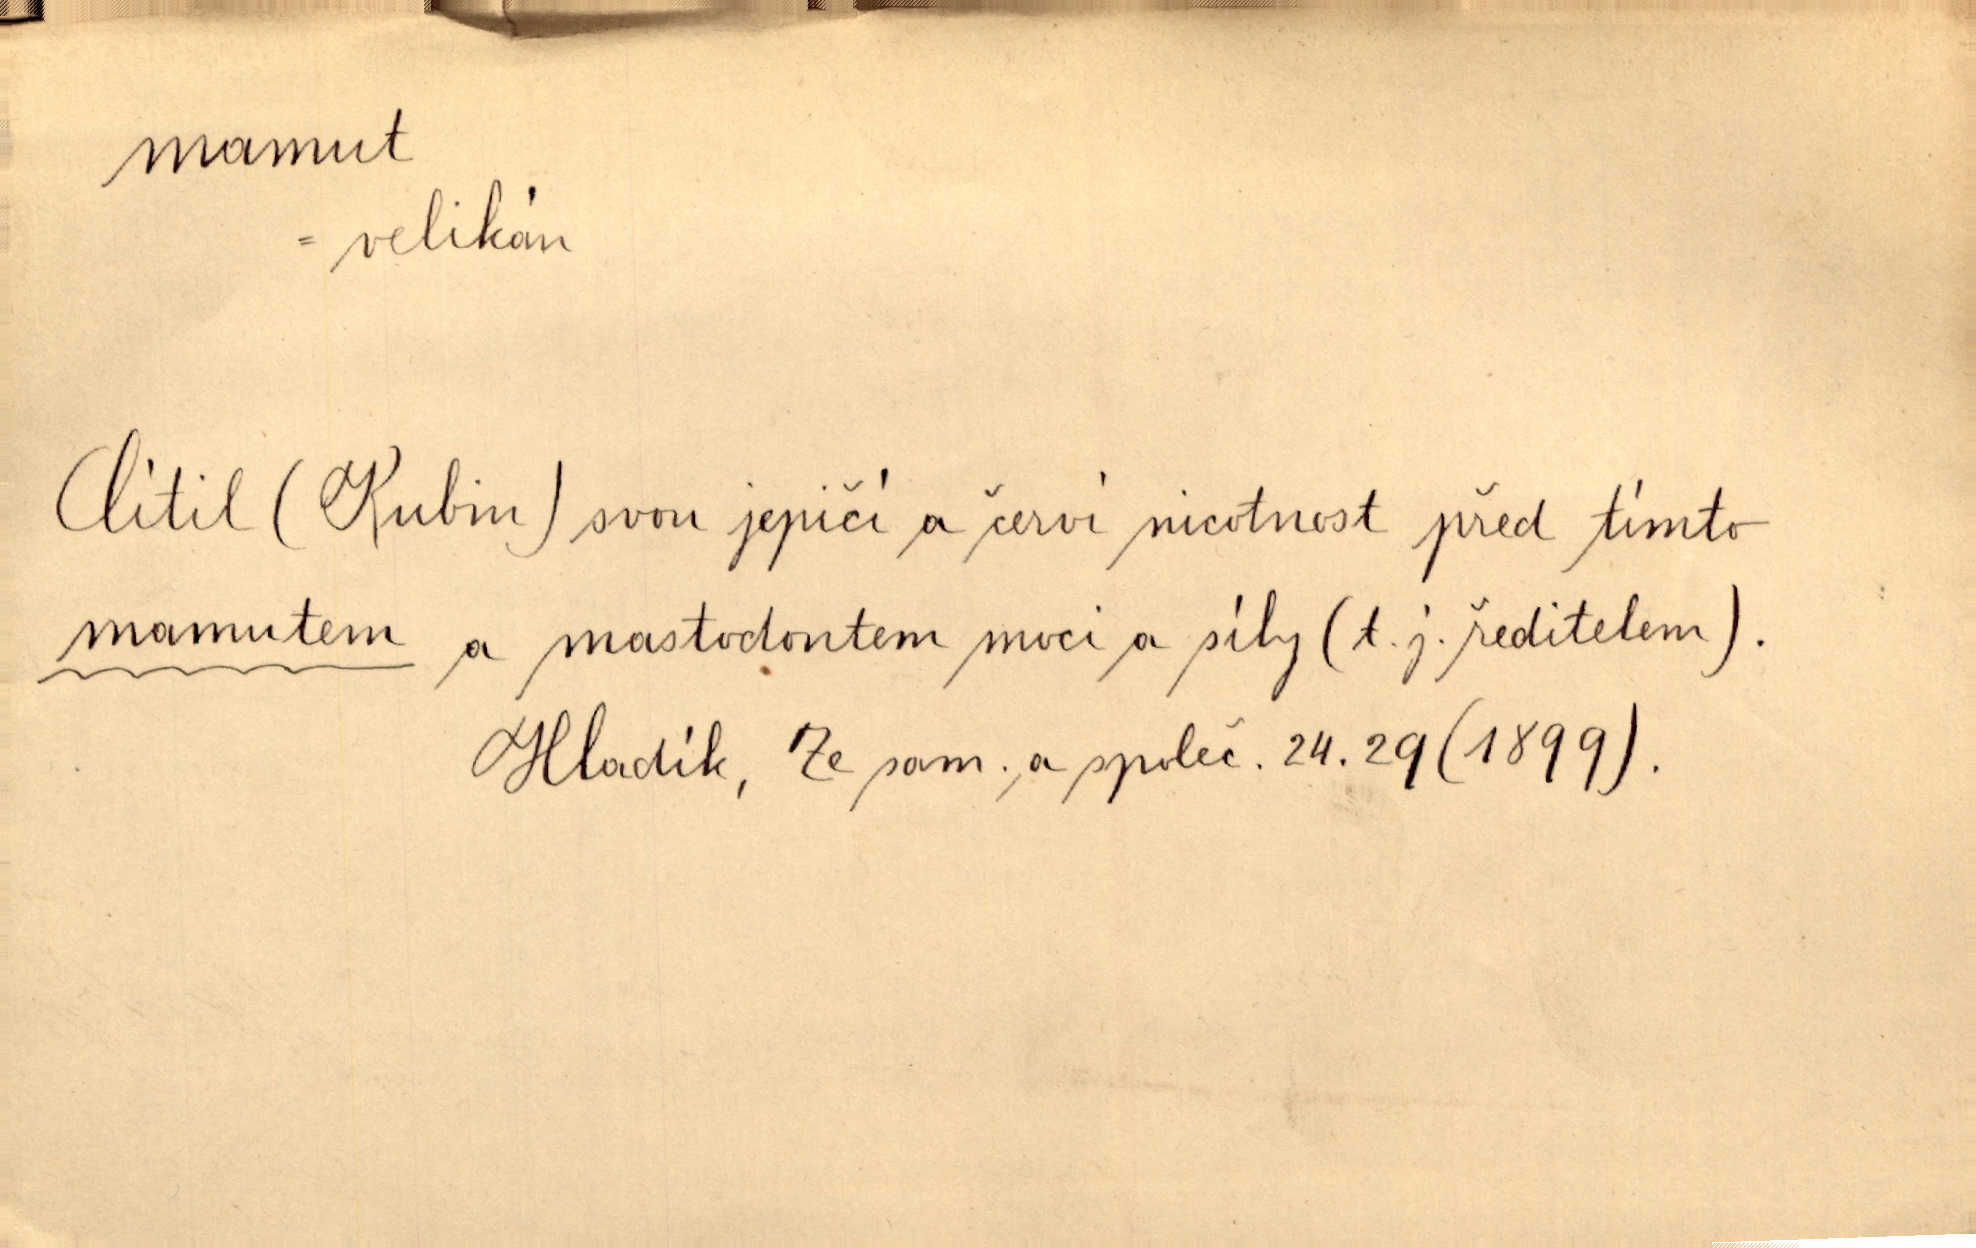 mamut
= velikán
Cítil (Kubin) svou jepičí a červí nicotnost před tímto
mamutem a mastodontem moci a síly (t. j. ředitelem).
Hladík, Ze sam. a společ. 24. 29 (1899).